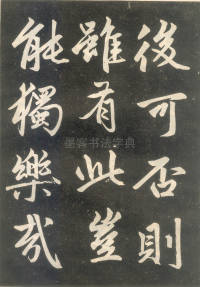 後可否則
雖有此豈
能獨樂哉
墨客书法字典